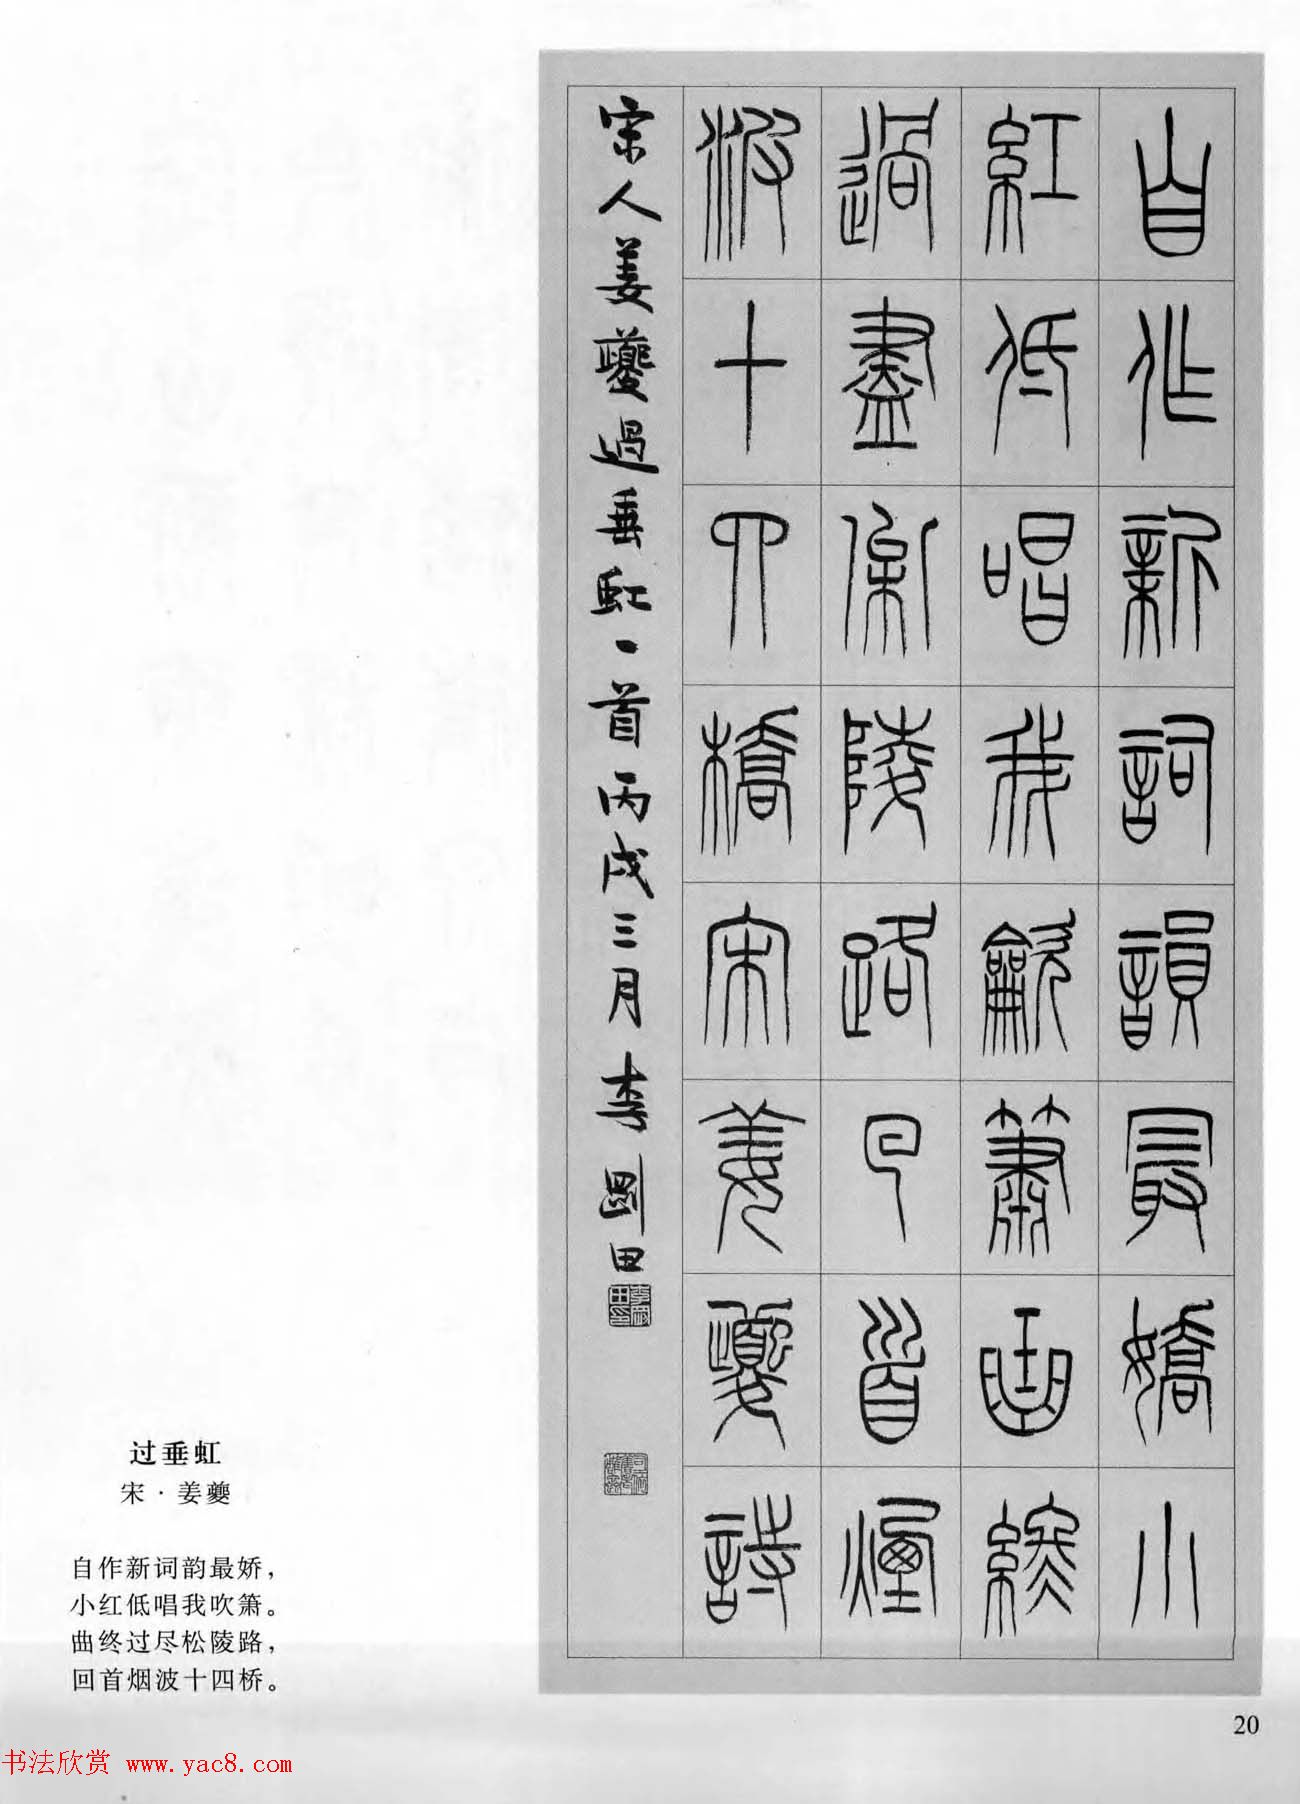 自作新詞韻最嬌小
紅低唱我龡簫曲終
過盡松陵路回首煙
波十四橋宋姜夔詩
宋人姜夔過垂虹一首丙戌三月李國田
过垂虹
宋·姜夔
自作新词韵最娇，
小红低唱我吹箫。
曲终过尽松陵路，
回首烟波十四桥。
20
书法欣赏 www.yac8.com